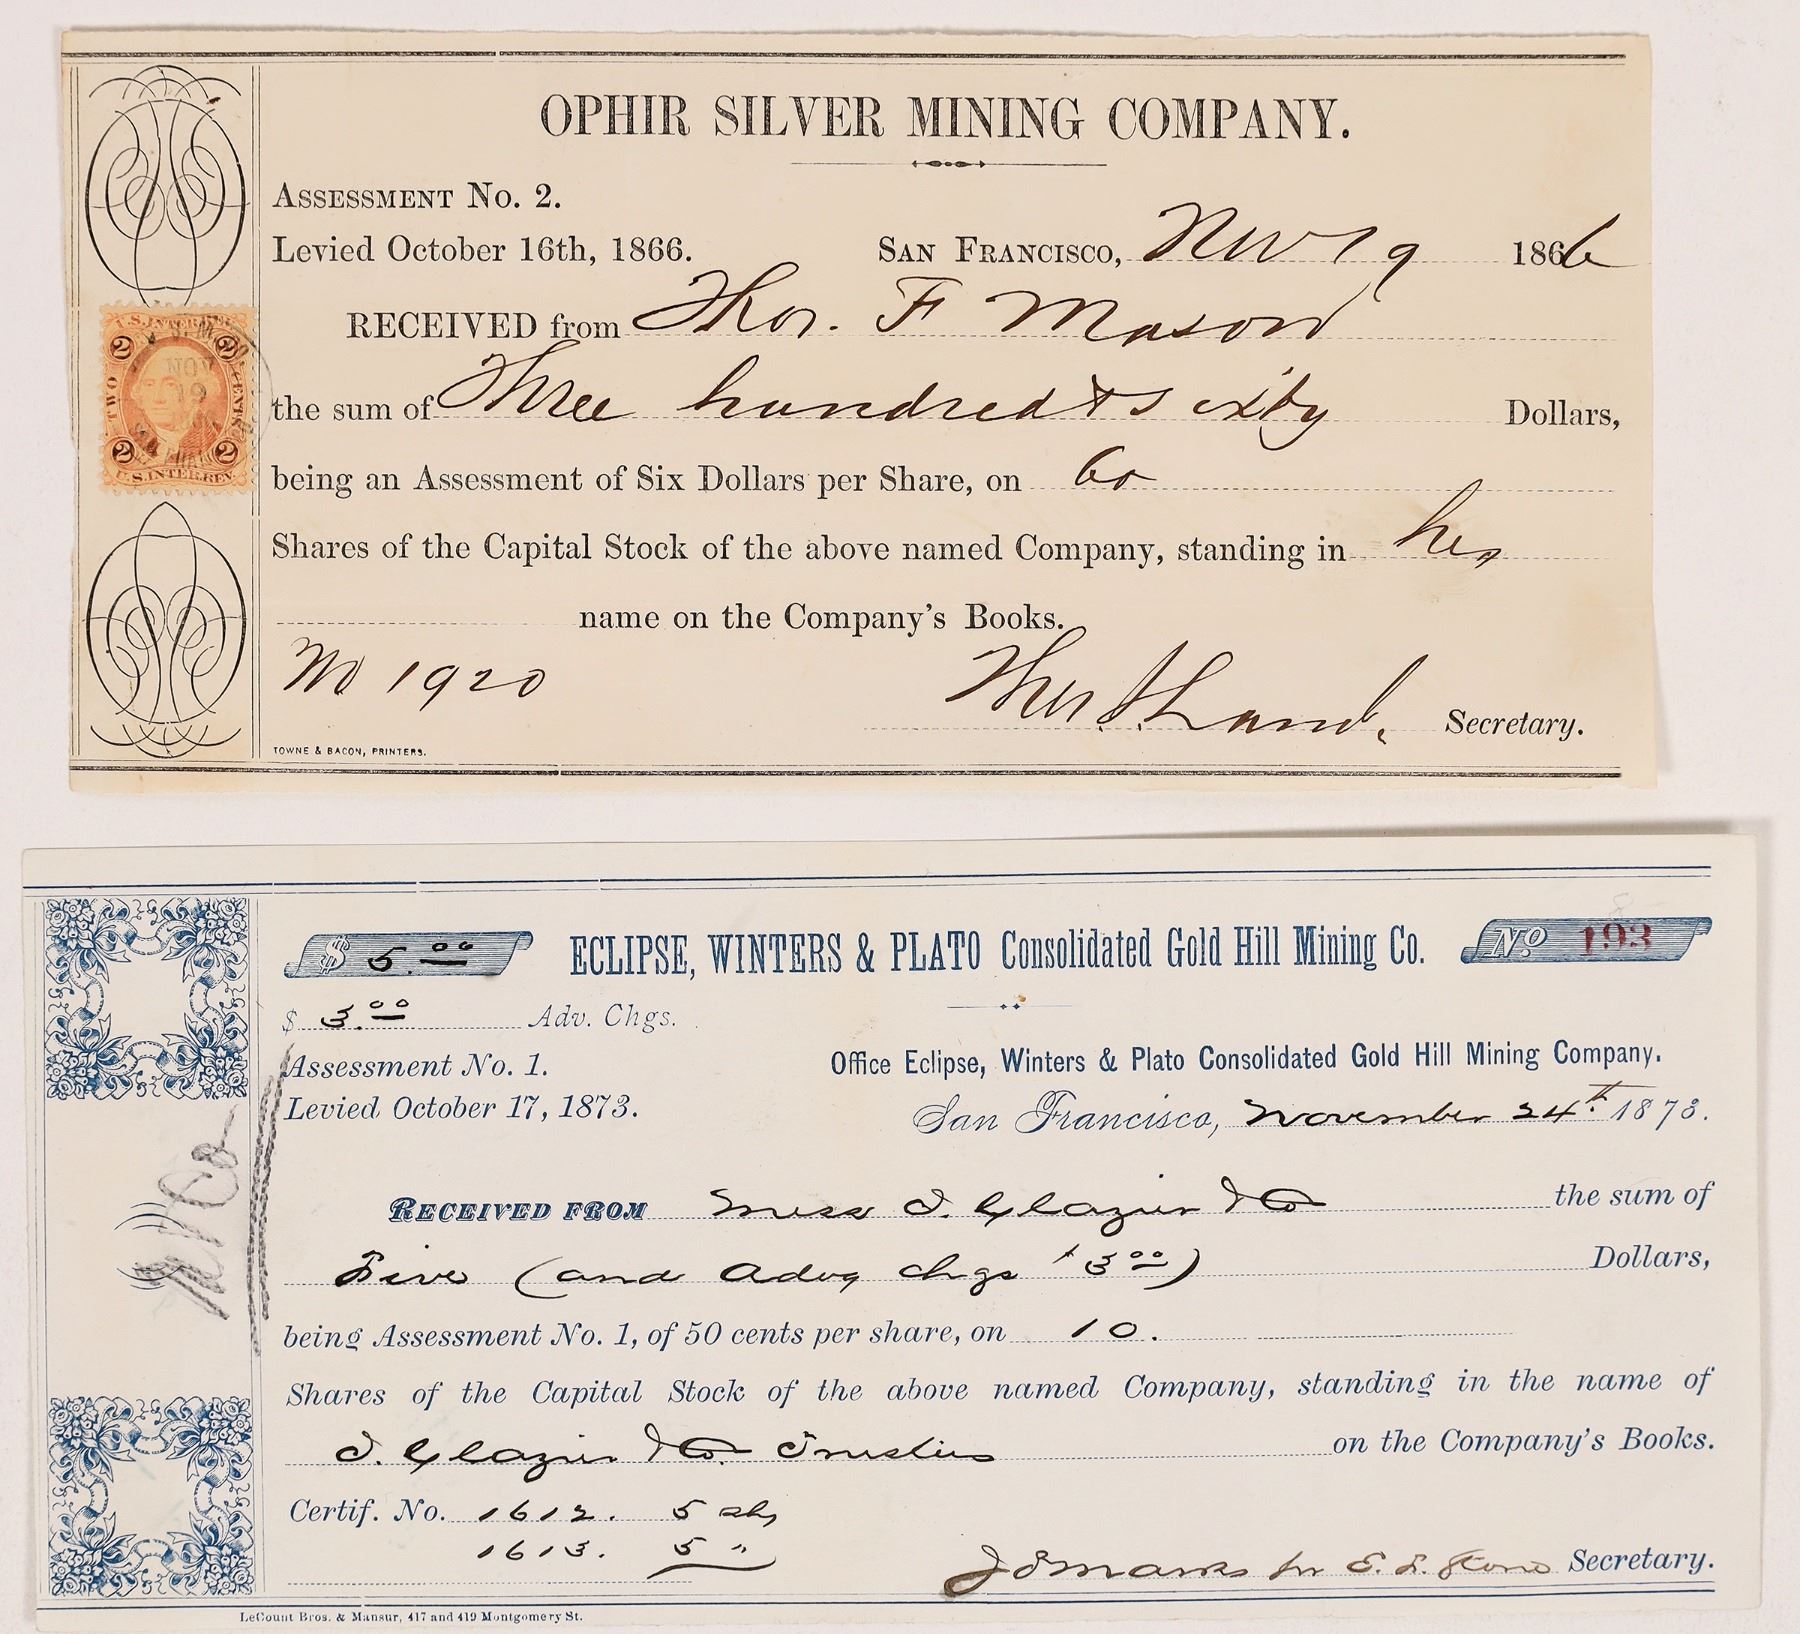 OPHIR SILVER MINING COMPANY.
ASSESSMENT No. 2.
Levied October 16th, 1866.
SAN FRANCISCO, Nov 19 1866
RECEIVED from Thos. F Mason
the sum of Three hundred & sixty Dollars,
being an Assessment of Six Dollars per Share, on 60
Shares of the Capital Stock of the above named Company, standing in his
name on the Company's Books.
No 1920
Secretary.
TOWNE & BACON, PRINTERS.
U.S. INTER. REV.
2 2
TWO CENTS
NOV
19
2 2
U.S. INTER. REV.
$ 5.00
ECLIPSE, WINTERS & PLATO Consolidated Gold Hill Mining Co.
No 193
$ 3.00 Adv. Chgs.
Assessment No. 1.
Levied October 17, 1873.
Office Eclipse, Winters & Plato Consolidated Gold Hill Mining Company.
San Francisco, November 24th 1873.
RECEIVED FROM Mess I. Glazier & Co the sum of
Five (and Advg chgs $3.00) Dollars,
being Assessment No. 1, of 50 cents per share, on 10.
Shares of the Capital Stock of the above named Company, standing in the name of
I. Glazier & Co. Trustees on the Company's Books.
Certif. No. 1612. 5 shs
1613. 5 "
J S Marks for E. F. Stone Secretary.
LeCount Bros. & Mansur, 417 and 419 Montgomery St.